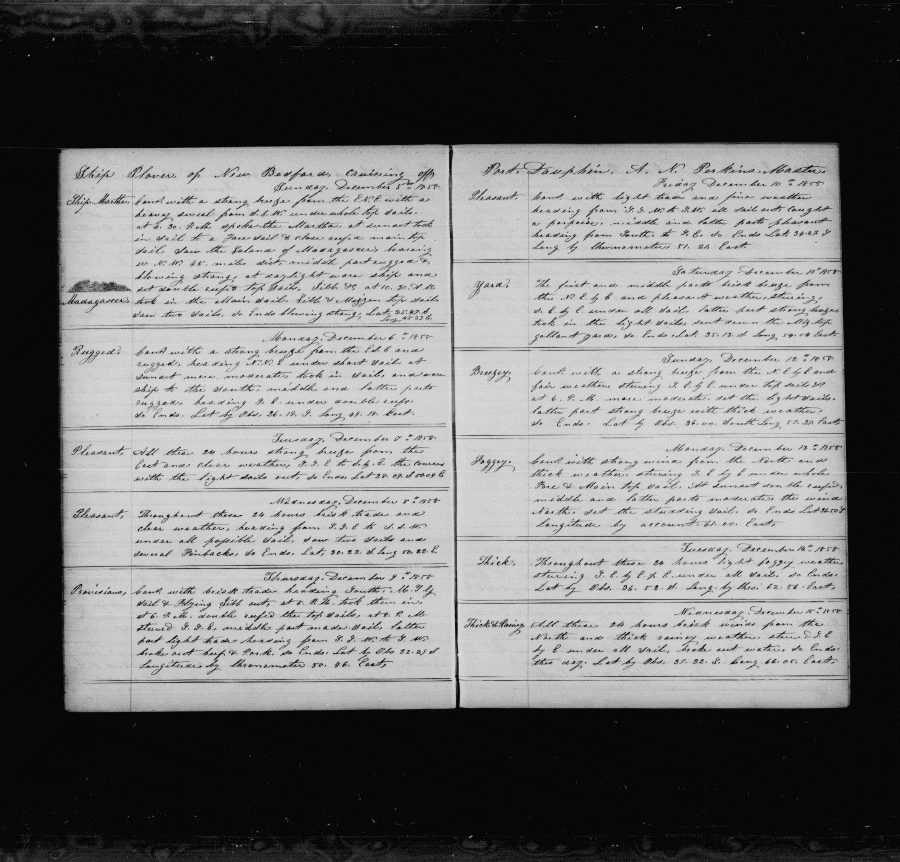 Ship Plover, of New Bedford, Cruising off
Sunday, December 5th 1858
Ship Martha Com's with a strong breeze from the E.N.E. with a
heavy swell from S.S.W. under whole top sails.
at 6.30 P.M. spoke the Martha at sunset took
in sail to a Fore sail & close reefed main top
sail, Saw the Island of Madagascar, bearing
W.N.W. 45 miles dist, middle part rugged &
blowing strong, at daylight wore ship and
set double reefed top sails, Jibb & at 10.30 A.M
Madagascar took in the Main sail Jibb & Mizzen top sails
saw two sails. So Ends blowing strong. Lat 25.47 S
Long 48.33 E
Monday, December 6th 1858
Rugged. Com's with a strong breeze from the and
rugged, heading N.N.E under short sail at
sunset more moderate took in sail, and wore
ship to the South, middle and latter parts
rugged heading S.E. under double reefs
So Ends. Lat by Obs. 26.18. S. Long 48.18. East.
Tuesday, December 7th 1858
Pleasant, All these 24 hours strong breeze from the
East and clear weather, S.S.E to the courses
with the light sails out, So Ends Lat 28.09. S 50.09 E
Wednesday, December 8th 1858
Pleasant, Throughout these 24 hours brisk trade and
clear weather, heading from S.S.E to S.S.W.
under all possible sail, saw two sails and
several Finbacks. So Ends. Lat, 30.22. S Long 50.22. E.
Thursday, December 9th 1858
Provisions, Com's with brisk trade heading South, M.T.G
sail & Flying Jibb out, at 5. P.M. took them in
at 6. P.M. double reefed the top sails, at 8. P.M
steered S.S.E, middle part made sail, latter
part light trade heading from S.S.W. to S.W.
broke out beef & Pork. So Ends Lat by Obs 32.25 S
Longitude by Chronometer 50. 46. East
Port Dauphin, A. N. Perkins, Master
Friday December 10th 1858
Pleasant. Com's with light trade and fine weather
heading from S.S.W. to S.W. all sail out, Caught
a porpoise, middle and latter parts pleasant
heading from South, to S.E. So Ends Lat 34.27 S
Long by Chronometer 51. 21. East
Saturday, December 11th 1858
Yard. The first and middle parts brisk breeze from
the N.E. by E and pleasant weather, steering
S.E. by E. under all sail, latter part strong breeze
took in the light sails sent down the Miz top
gallant yard. So Ends. Lat 35.13 S Long 54.04 East
Sunday, December 12th 1858
Breezey, Com's with a strong breeze from the N.E by E and
fair weather, steering S.E by E under top sails &c
at 6. P.M. more moderate, set the light sails
latter part strong breeze with thick weather,
So Ends. Lat by Obs. 36.00. South Long 57.22. East
Monday, December 13th 1858
Foggey, Com's with strong wind from the North and
thick weather, steering S.E by E under whole
Fore & Main top sail. At sunset double reefed
middle and latter parts moderate the wind
North, set the studding sail. So Ends Lat 36.50 S
Longitude by account 61.00. East
Tuesday, December 14th 1858
Thick. Throughout these 24 hours light foggey weather
steering S.E. by E ½ E. under all sail, So Ends.
Lat by Obs. 36. 52. S. Long by chro. 62. 56. East.
Wednesday, December 15th 1858
Thick & Rainey All these 24 hours brisk winds from the
North and thick rainey weather, steered S.E
by E under all sail, broke out water, So Ends
this day. Lat by Obs. 37. 22. S. Long 66.05. East.